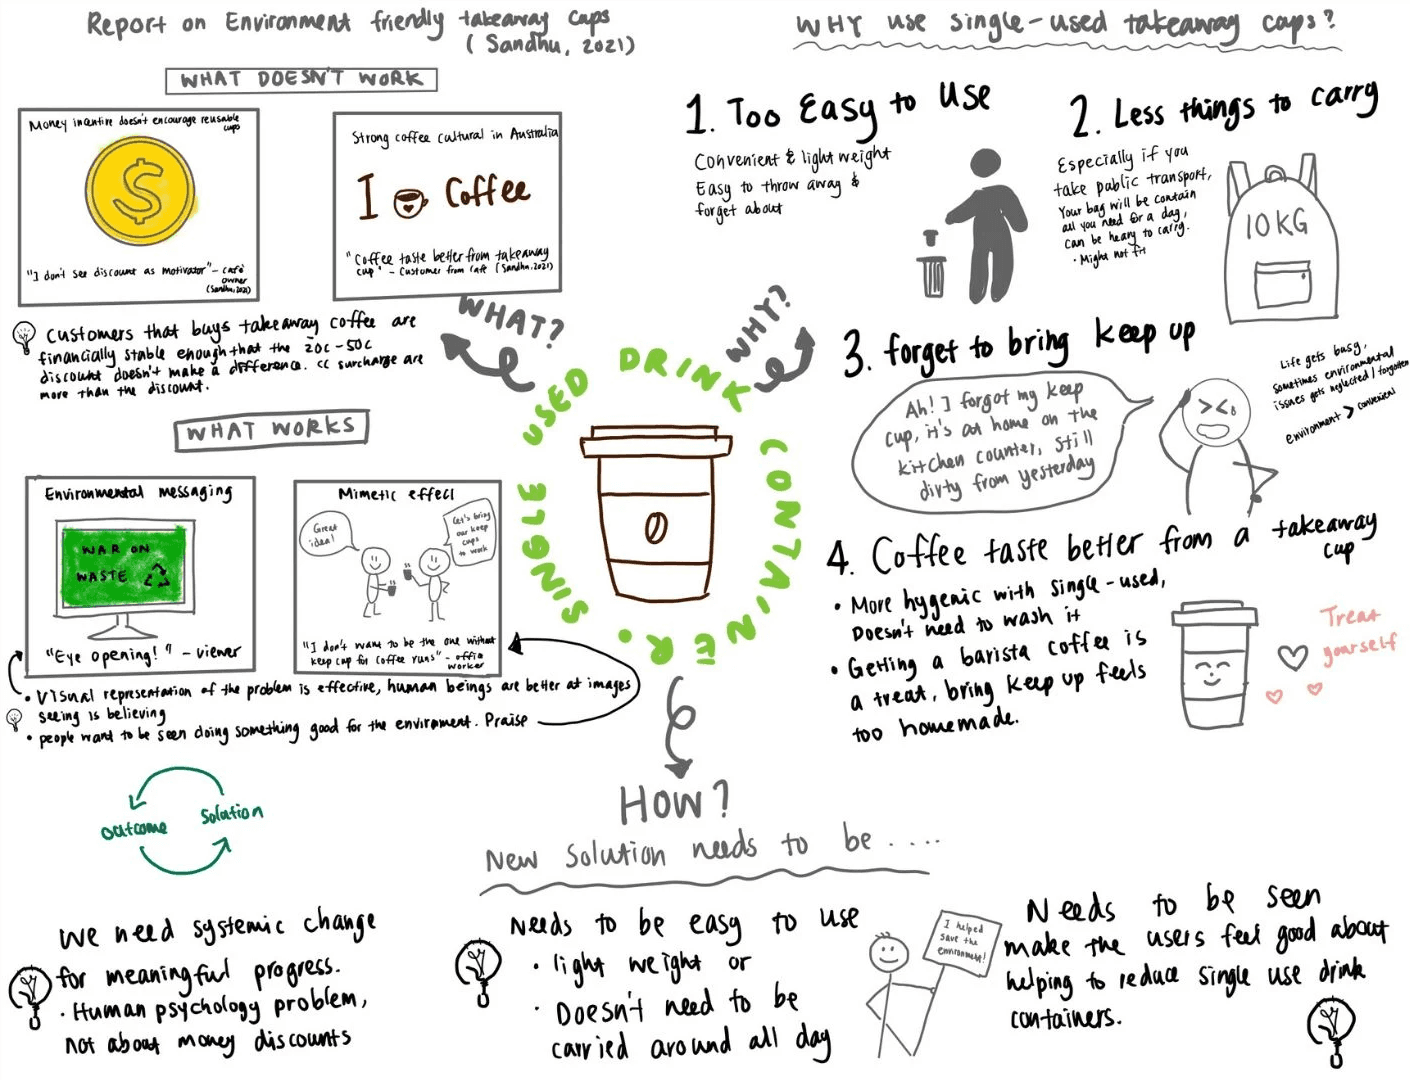 Report on Environment friendly takeaway cups
( Sandhu, 2021)
WHAT DOESN'T WORK
Money incentive doesn't encourage reusable
cups
$
"I don't see discount as motivator" - café
owner
(Sandhu, 2021)
Strong coffee cultural in Australia
I Coffee
"Coffee taste better from takeaway
cup" - Customer from café (Sandhu, 2021)
Customers that buys takeaway coffee are
financially stable enough that the 20c - 50c
discount doesn't make a difference. CC surcharge are
more than the discount.
WHAT WORKS
Environmental messaging
WAR ON
WASTE
"Eye opening!" - viewer
Mimetic effect
Great
idea!
Let's bring
our keep
cups
to work
"I don't want to be the one without
keep cup for coffee runs" - office
worker
• Visual representation of the problem is effective, human beings are better at images
seeing is believing
• people want to be seen doing something good for the environment. Praise
Outcome
Solution
We need systemic change
for meaningful progress.
• Human psychology problem,
not about money discounts
WHAT?
WHY?
SINGLE USED DRINK CONTAINER.
WHY use single-used takeaway cups?
1. Too Easy to use
Convenient & light weight
Easy to throw away &
forget about
2. Less things to carry
Especially if you
take public transport,
Your bag will be contain
all you need for a day,
can be heavy to carry.
• Might not fit
10KG
3. forget to bring keep up
Ah! I forgot my keep
cup, it's at home on the
kitchen counter, still
dirty from yesterday
Life gets busy,
sometimes environmental
issues gets neglected / forgotten
environment > convenient
4. Coffee taste better from a takeaway
cup
• More hygenic with single-used,
Doesn't need to wash it
• Getting a barista coffee is
a treat, bring keep up feels
too homemade.
Treat
yourself
HOW?
New solution needs to be .....
Needs to be easy to use
• light weight or
• Doesn't need to be
carried around all day
I helped
save the
environment!
Needs to be seen
make the users feel good about
helping to reduce single use drink
containers.